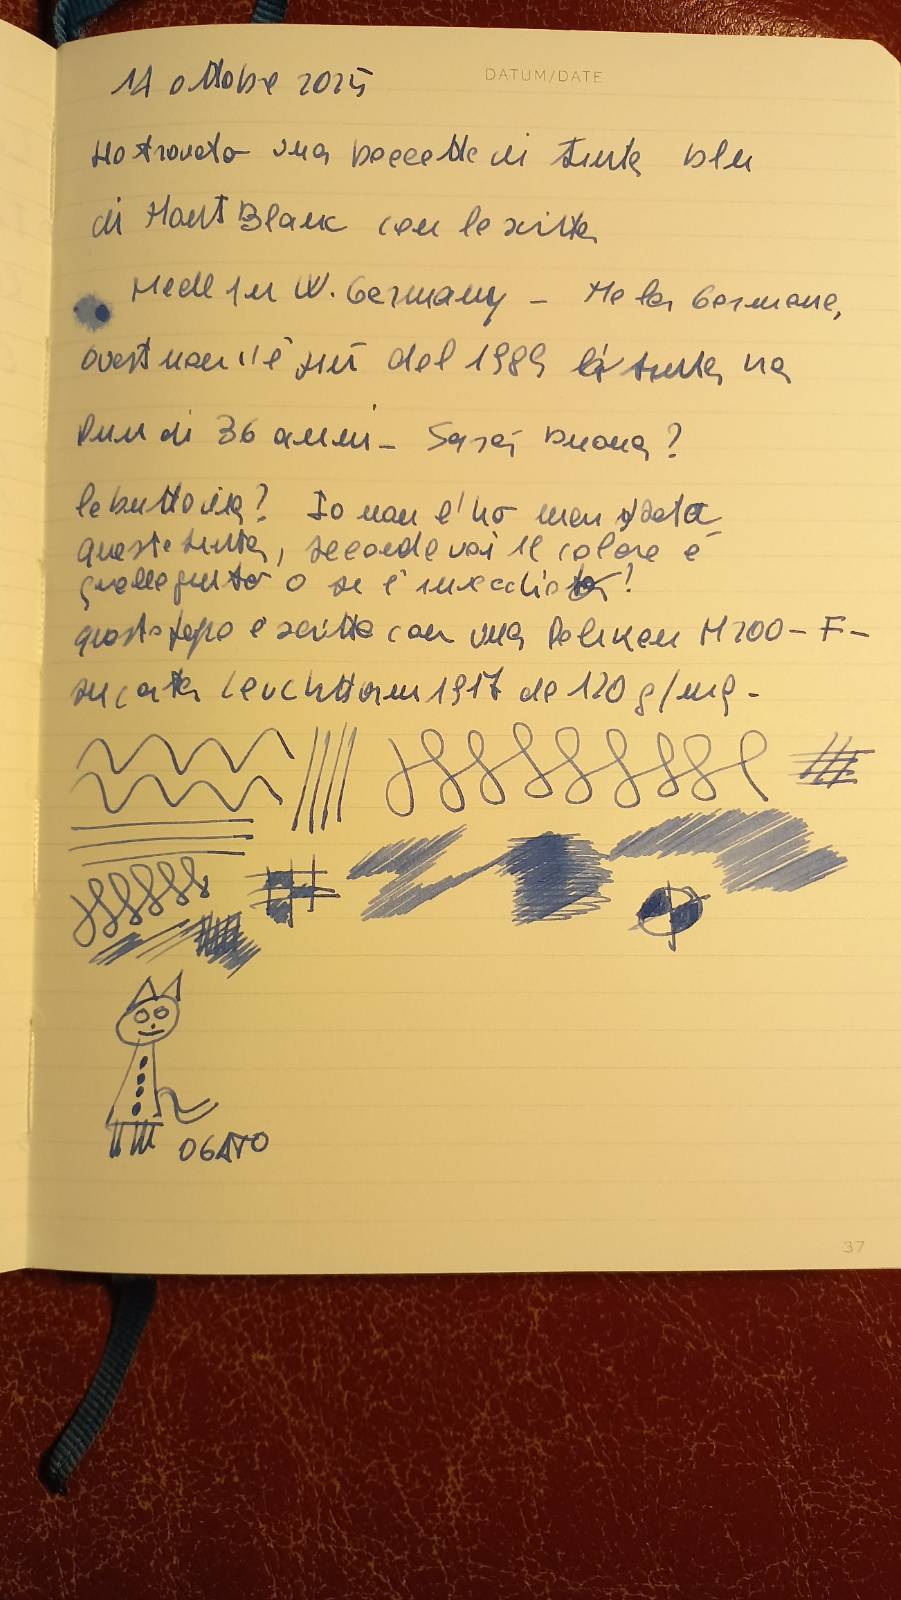 11 ottobre 2025
DATUM/DATE
Ho trovato una boccetta di tinta blu
di MontBlanc con la scritta
Made in W. Germany - Ma la Germania,
ovest non c'è più del 1989 la tinta ha
anni di 36 anni - Sarà buona?
la butto via? Io non l'ho mai usata
questa tinta, secondo voi il colore è
quello giusto o si è invecchiata?
questo foglio è scritto con una Pelikan M200-F-
su carta Leuchtturm1917 da 120 g/mq -
OGATTO
37